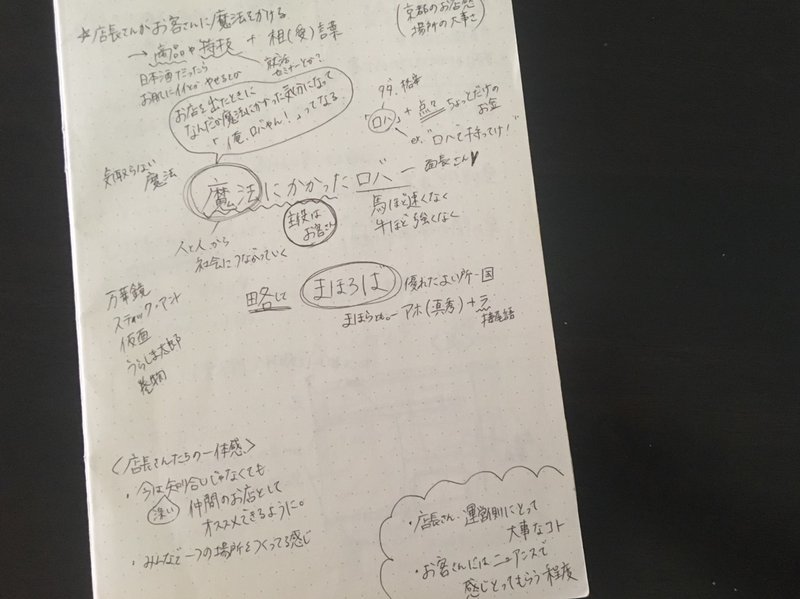 ☆店長さんがお客さんに魔法をかける
(京都のお店感
場所の大事さ
→商品や特技 + 相(愛)言葉
日本酒だったら
お肌にイイとかやせるとか
就活
セミナーとか?
お店を出たときに
なんだか魔法にかかった気分になって
「俺、ロバやん!」ってなる
「ロバ」+ 点々 ちょっとだけの
お金
ex. "ロバで持ってけ!"
気取らない
魔法
魔法にかかったロバー 店長さん♥
主役は
お客さん
馬ほど速くなく
牛ほど強くなく
人と人から
社会につながっていく
略して まほろば 優れたよい所・国
アホ(真秀)+ラ
接尾語
万華鏡
スティック・アント
仮面
うらしま太郎
〈店長さんたちの一体感〉
・今は知り合いじゃなくても
深い 仲間のお店として
オススメできるように。
・みんなで一つの場所をつくってる感じ
・店長さん・運営側にとって
大事なコト
・お客さんにはニュアンスで
感じとってもらう程度